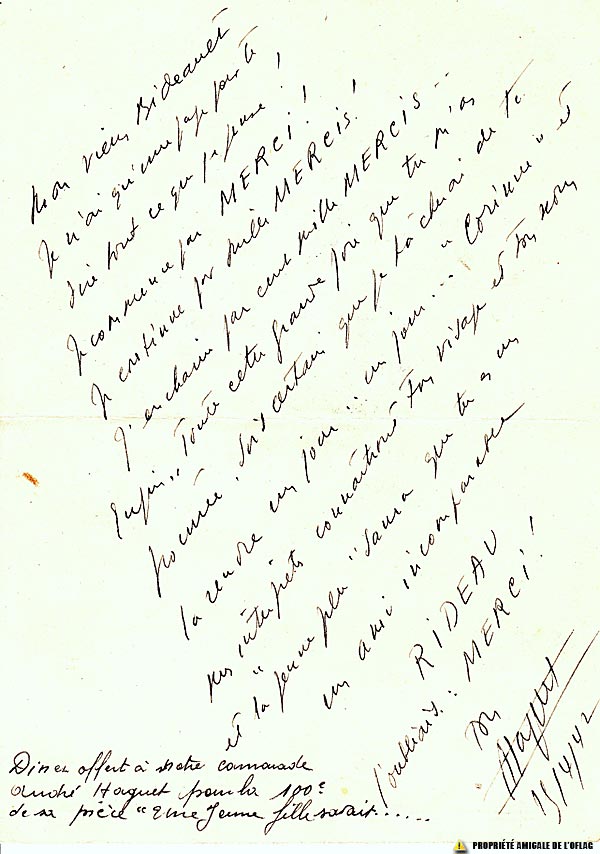 Mon vieux Bideauet
Je n'ai qu'une page pour te
dire tout ce que je pense !
Je commence par MERCI !
Je continue par mille MERCIS !
J'enchaîne par cent mille MERCIS...
Enfin.. Toute cette grande joie que tu m'as
procurée, sois certain que je tâcherai de te
la rendre un jour.. un jour... "Corinne" et
ses interprètes connaîtront ton visage et ton nom
et la "jeune fille" saura que tu es un
un ami incomparable
RIDEAU
J'oubliais.. MERCI !
Ton
AHaguet
15/4/42
Diner offert à notre camarade
André Haguet pour la 100e
de sa pièce "Une Jeune fille savait.....
PROPRIÉTÉ AMICALE DE L'OFLAG